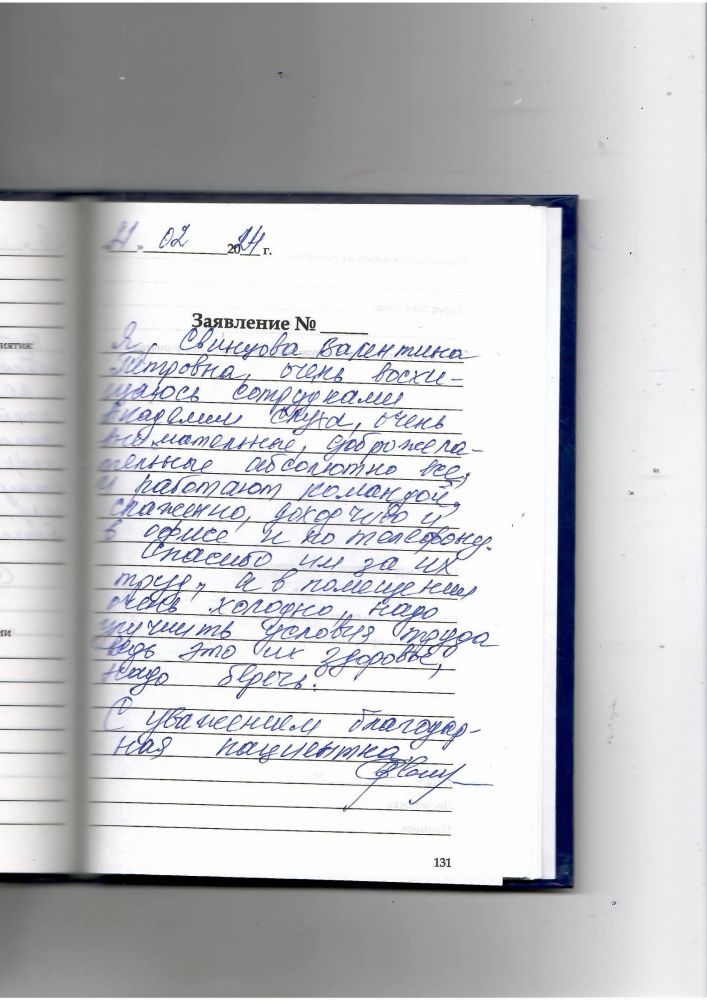 21 » 02 2024 г.
Заявление № ____
Я, Свинцова Валентина
Петровна, очень восхи-
щаюсь сотрудками
Академии слуха, очень
внимательные, доброжела-
тельные абсолютно все,
и работают командой,
слаженно, доходчиво и
в офисе и по телефону.
Спасибо им за их
труд, а в помещении
очень холодно, надо
улучшить условия труда
ведь это их здоровье,
надо беречь.
С уважением благодар-
ная пациентка.
131
иятия:
ии